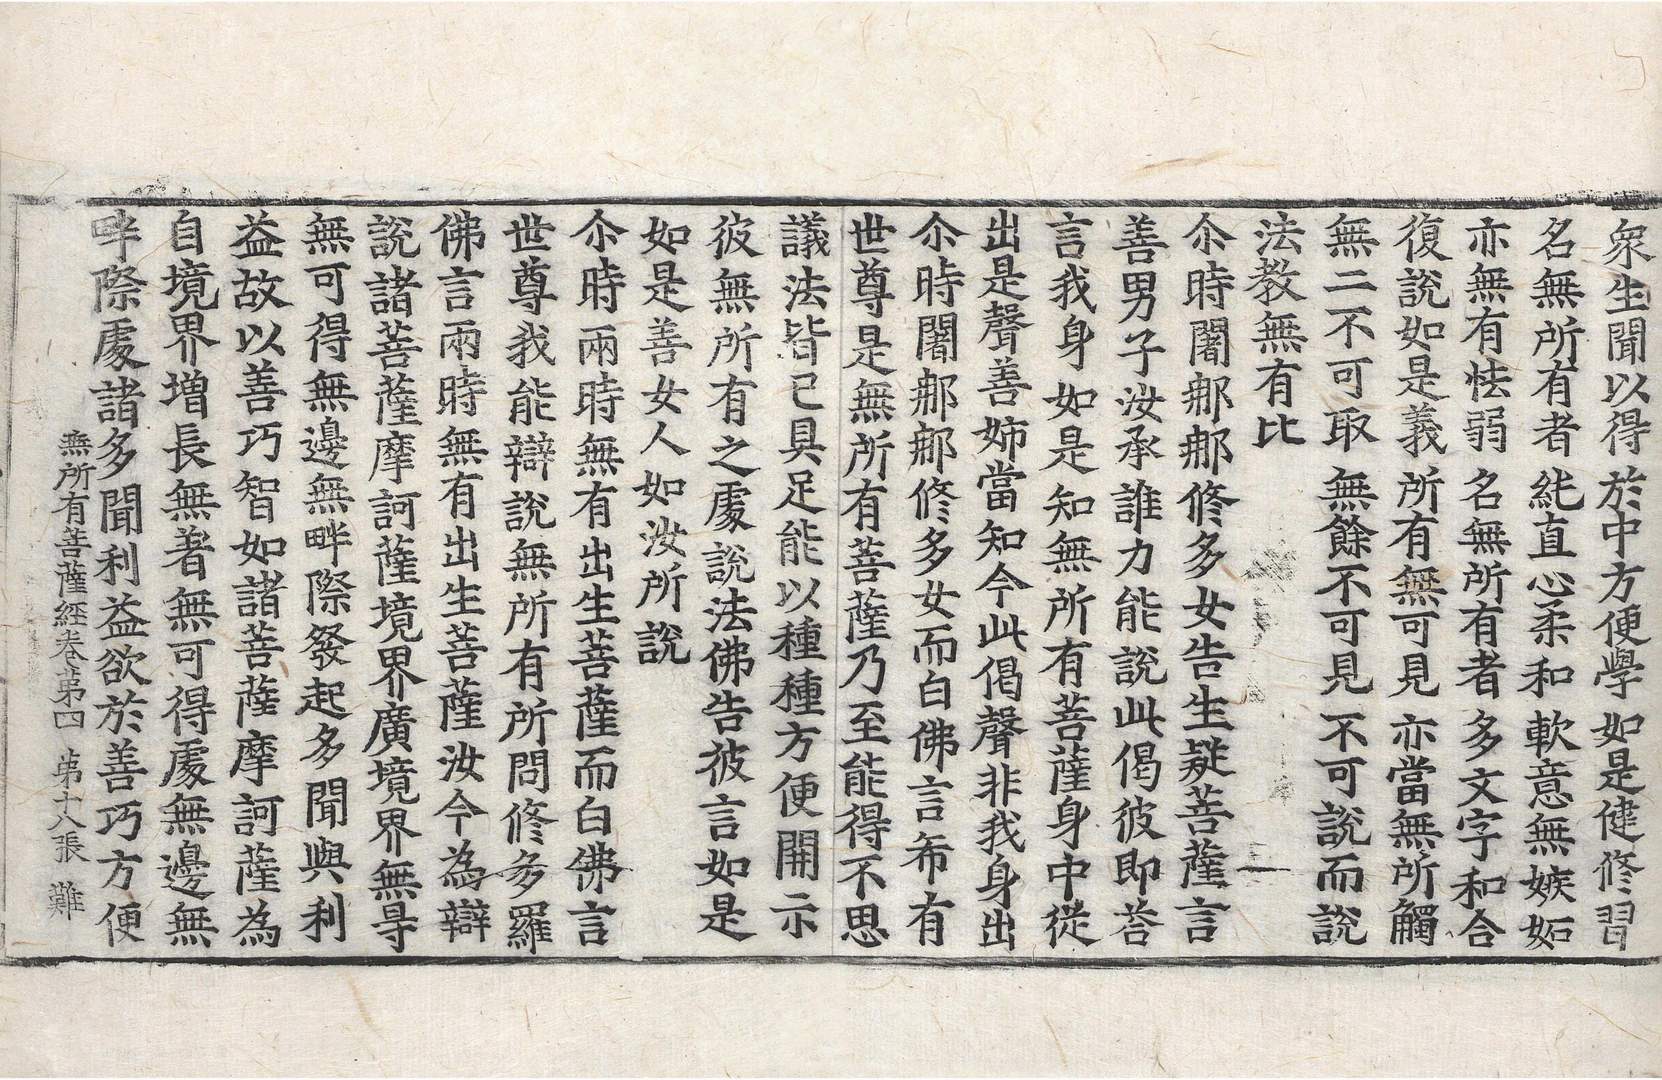 衆生聞以得 於中方便學 如是健修習
名無所有者 純直心柔和 軟意無嫉妬
亦無有怯弱 名無所有者 多文字和合
復說如是義 所有無可見 亦當無所觸
無二不可取 無餘不可見 不可說而說
法教無有比
尒時闍郍郍修多女告生疑菩薩言
善男子汝承誰力能說此偈彼即荅
言我身如是知無所有菩薩身中從
出是聲善姊當知今此偈聲非我身出
尒時闍郍郍修多女而白佛言希有
世尊是無所有菩薩乃至能得不思
議法皆已具足能以種種方便開示
彼無所有之處說法佛告彼言如是
如是善女人如汝所說
尒時兩時無有出生菩薩而白佛言
世尊我能辯說無所有所問修多羅
佛言兩時無有出生菩薩汝今為辯
說諸菩薩摩訶薩境界廣境界無㝵
無可得無邊無畔際發起多聞與利
益故以善巧智如諸菩薩摩訶薩為
自境界增長無著無可得處無邊無
畔際處諸多聞利益欲於善巧方便
無所有菩薩經卷第四 第十八張 難